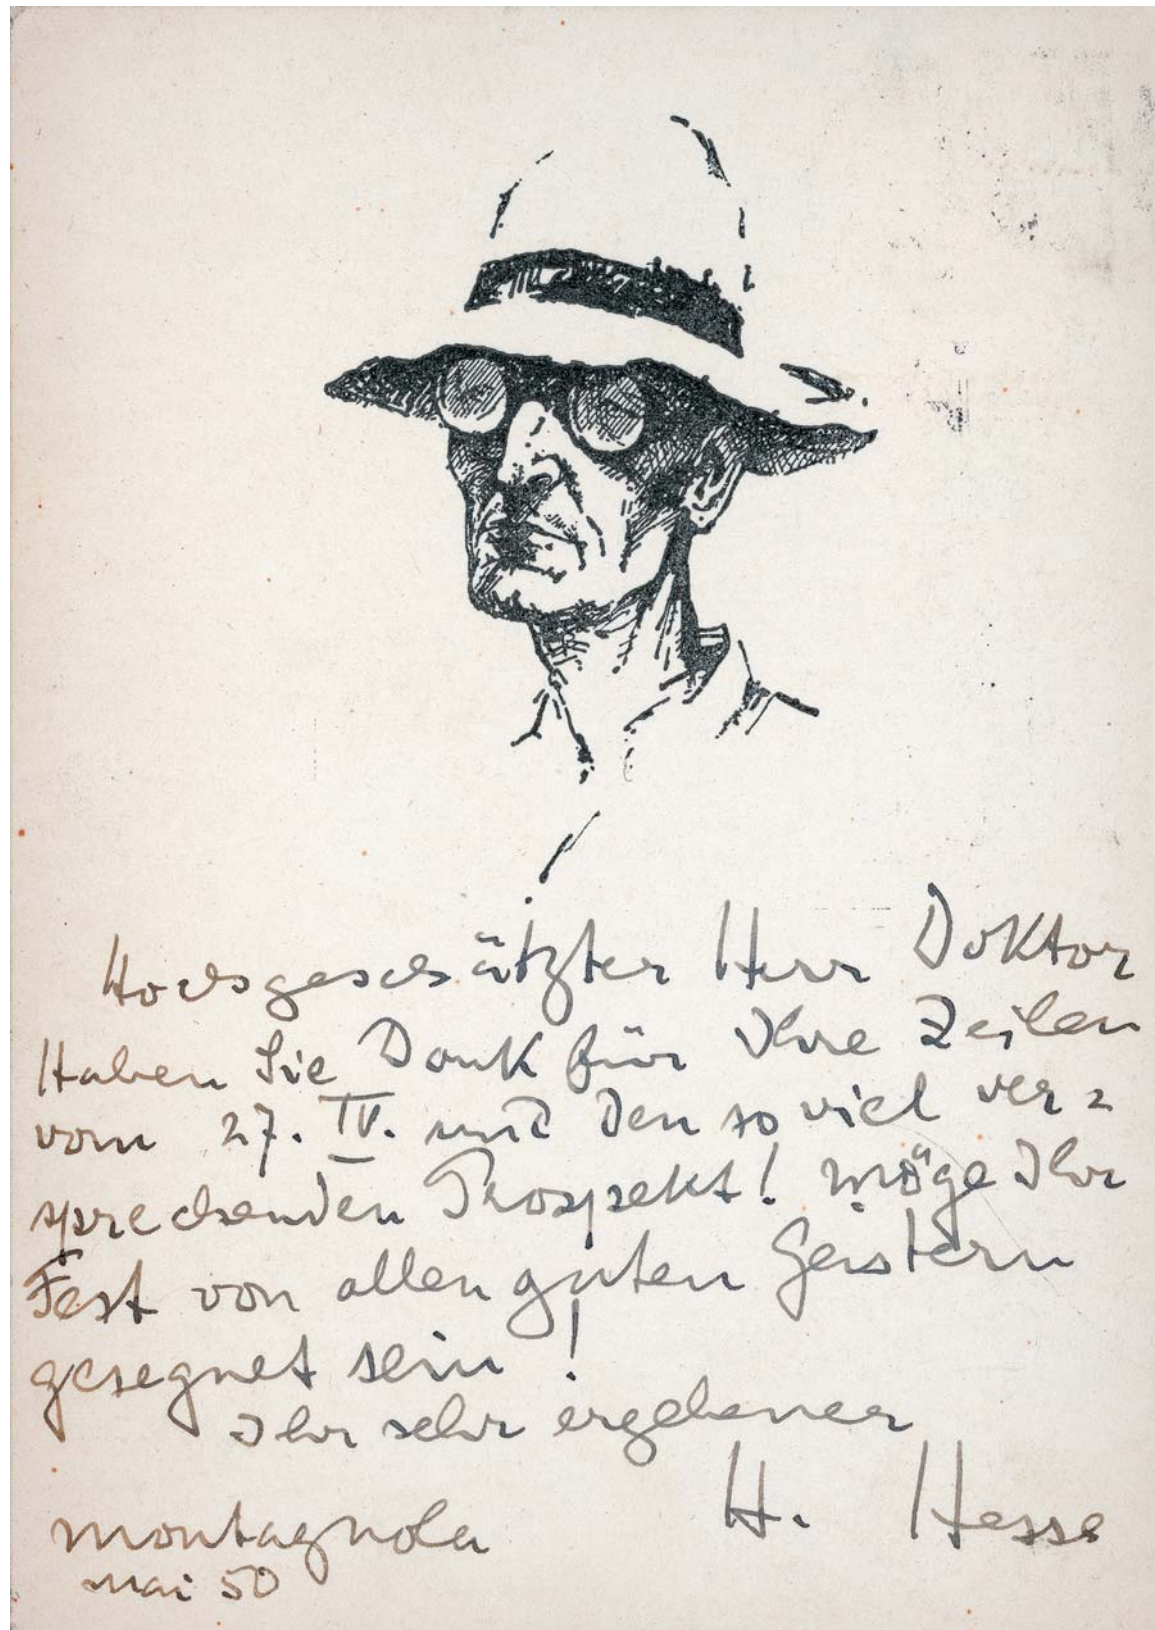 Hochgeschätzter Herr Doktor
Haben Sie Dank für Ihre Zeilen
vom 27. IV. und den so viel ver=
sprechenden Prospekt! Möge Ihr
Fest von allen guten Geistern
gesegnet sein!
Ihr sehr ergebener
H. Hesse
Montagnola
Mai 50